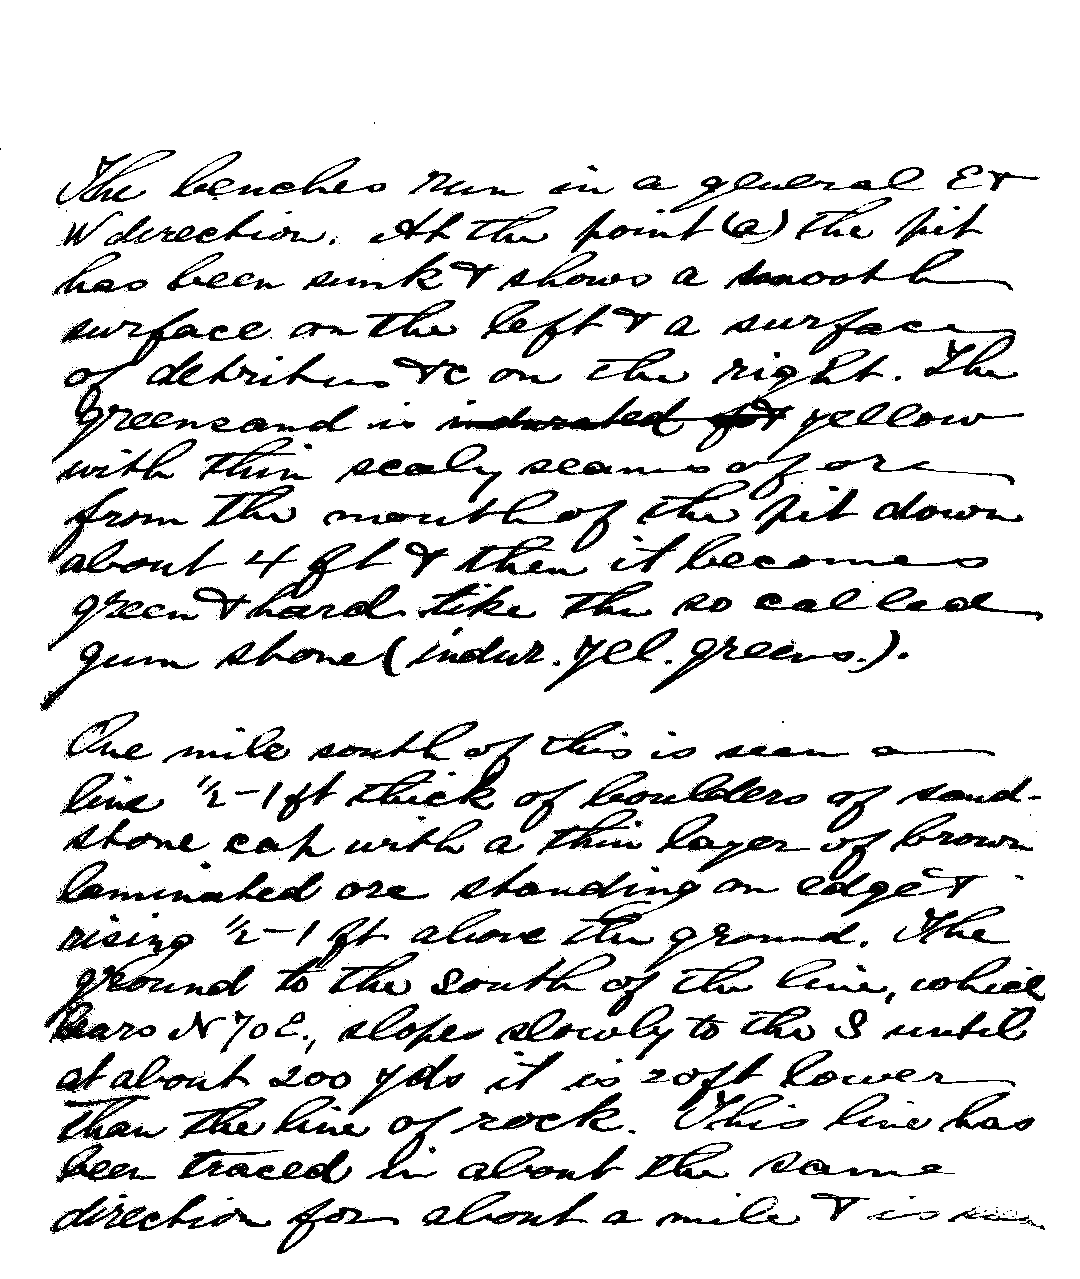 The benches run in a general E &
W direction. At the point (a) the pit
has been sunk & shows a smooth
surface on the left & a surface
of detritus &c on the right. The
greensand is indurated for yellow
with thin scaly seams of ore
from the mouth of the pit down
about 4 ft & then it becomes
green & hard like the so called
gum stone (indur. yel. greens.).
One mile south of this is seen a
line ½-1 ft thick of boulders of sand-
stone cap with a thin layer of brown
laminated ore standing on edge &
rising ½-1 ft above the ground. The
ground to the South of the line, which
bears N 70 E., slopes slowly to the S until
at about 200 yds it is 20 ft lower
than the line of rock. This line has
been traced in about the same
direction for about a mile & is seen